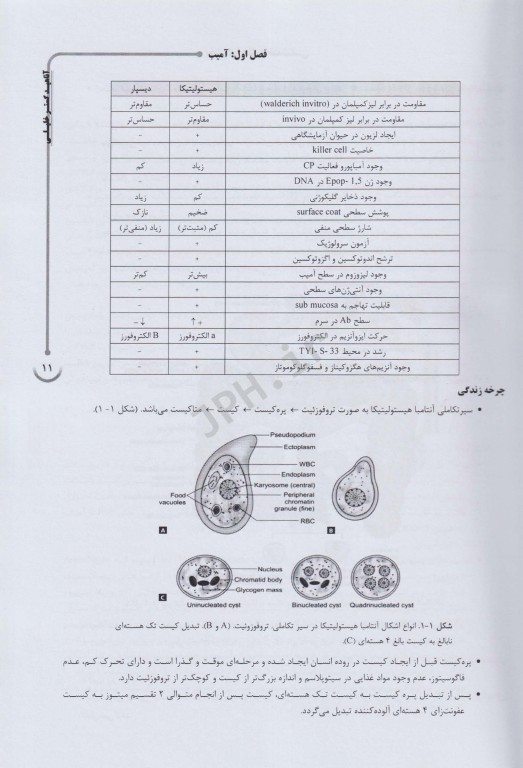 فصل اول: آمیب
هیستولیتیکا دیسپار
مقاومت در برابر لیز کمپلمان در (walderich invitro) حساس‌تر مقاوم‌تر
مقاومت در برابر لیز کمپلمان در invivo مقاوم‌تر حساس‌تر
ایجاد لزیون در حیوان آزمایشگاهی + -
خاصیت killer cell + -
وجود آمباپورو فعالیت CP زیاد کم
وجود ژن Epop- 1,5 در DNA + -
وجود ذخایر گلیکوژنی کم زیاد
پوشش سطحی surface coat ضخیم نازک
شارژ سطحی منفی کم (مثبت‌تر) زیاد (منفی‌تر)
آزمون سرولوژیک + -
ترشح اندوتوکسین و اگزوتوکسین + -
وجود لیزوزوم در سطح آمیب بیش‌تر کم‌تر
وجود آنتی‌ژن‌های سطحی + -
قابلیت تهاجم به sub mucosa + -
سطح Ab در سرم + ↑ - ↓
حرکت ایزوآنزیم در الکتروفورز a الکتروفورز B الکتروفورز
رشد در محیط TYI- S- 33 + -
وجود آنزیم‌های هگزوکیناز و فسفوگلوکوموتاز + -
۱۱
چرخه زندگی
• سیر تکاملی آنتامبا هیستولیتیکا به صورت تروفوزئیت ← پره‌کیست ← کیست ← متاکیست می‌باشد. (شکل ۱-۱).
Pseudopodium
Ectoplasm
WBC
Endoplasm
Karyosome (central)
Peripheral
chromatin
granule (fine)
RBC
Food
vacuoles
A
B
Nucleus
Chromatid body
Glycogen mass
C
Uninucleated cyst Binucleated cyst Quadrinucleated cyst
شکل ۱-۱. انواع اشکال آنتامبا هیستولیتیکا در سیر تکاملی. تروفوزوئیت. (A و B). تبدیل کیست تک هسته‌ای
نابالغ به کیست بالغ ۴ هسته‌ای (C).
• پره‌کیست قبل از ایجاد کیست در روده انسان ایجاد شده و مرحله‌ای موقت و گذرا است و دارای تحرک کم، عدم
فاگوسیتوز، عدم وجود مواد غذایی در سیتوپلاسم و اندازه بزرگ‌تر از کیست و کوچک‌تر از تروفوزئیت دارد.
• پس از تبدیل پره کیست به کیست تک هسته‌ای، کیست پس از انجام متوالی ۲ تقسیم میتوز به کیست
عفونت‌زای ۴ هسته‌ای آلوده‌کننده تبدیل می‌گردد.